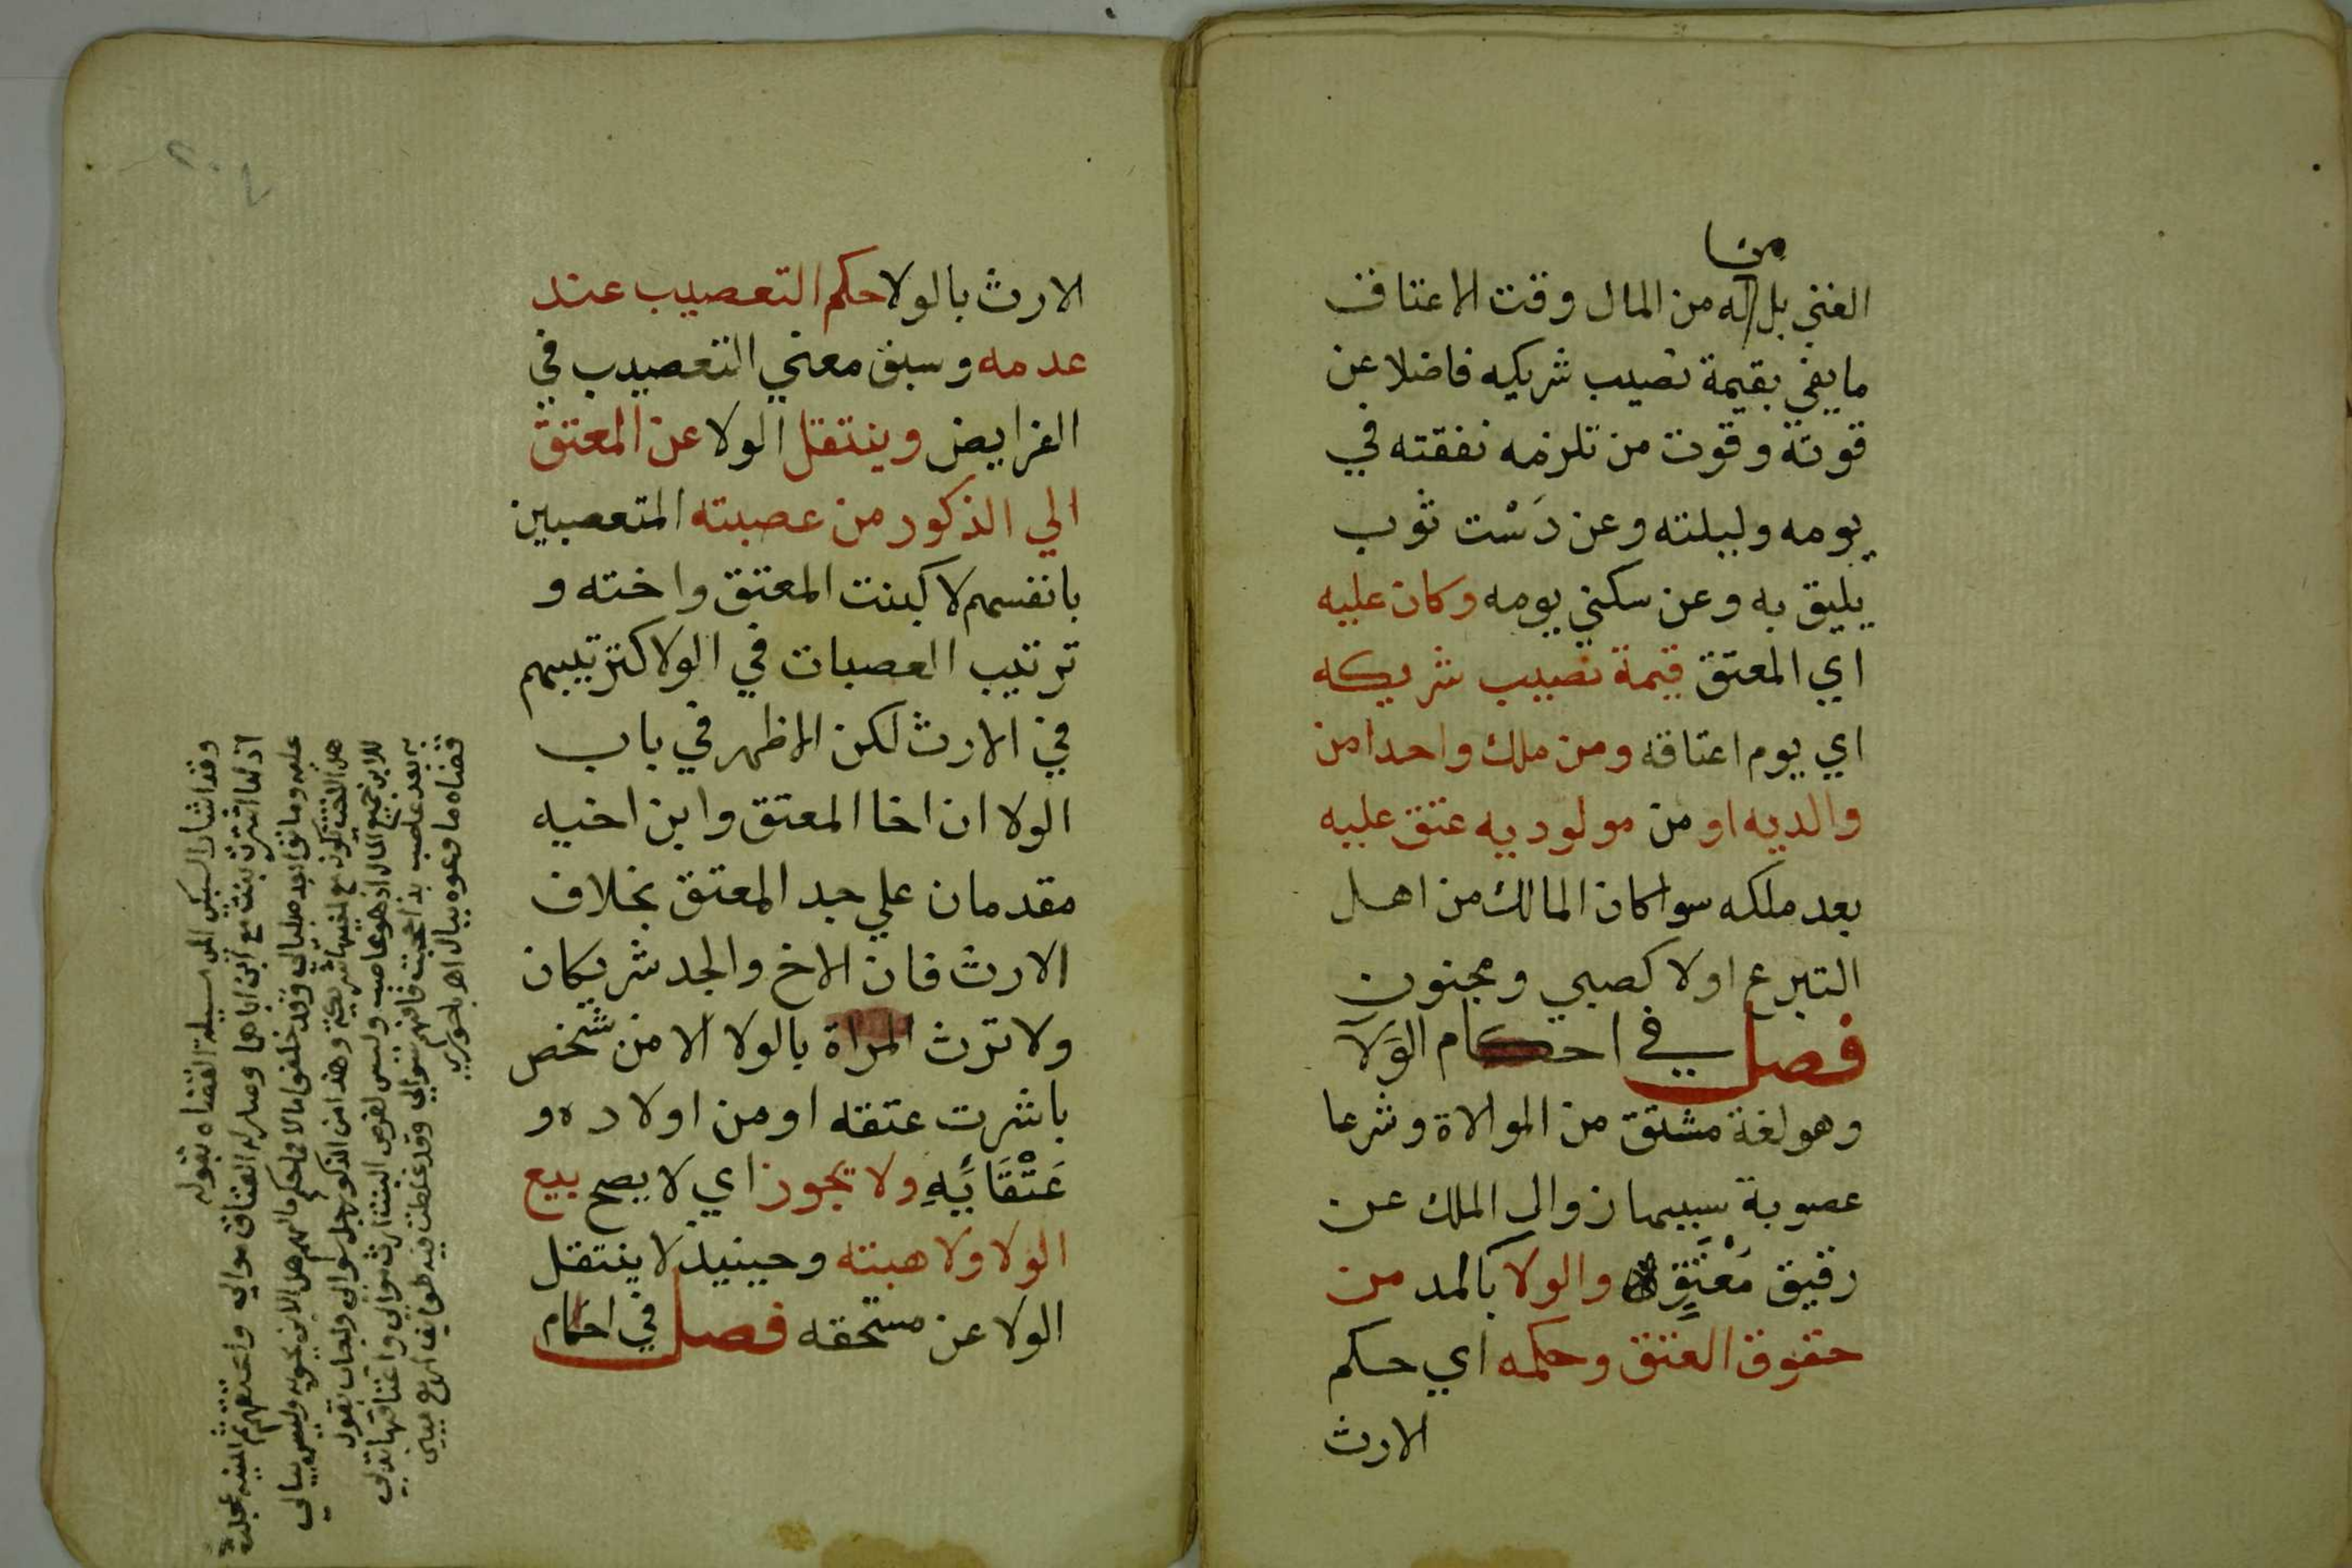 من
الغني بل له من المال وقت الاعتاق
ما يفي بقيمة نصيب شريكيه فاضلا عن
قوته وقوت من تلزمه نفقته في
يومه وليلته وعن دَسْت ثوب
يليق به وعن سكني يومه وكان عليه
اي المعتق قيمة نصيب شريكه
اي يوم اعتاقه ومن ملك واحدا من
والديه او من مولوديه عتق عليه
بعد ملكه سوا كان المالك من اهل
التبرع او لا كصبي ومجنون
فصل في احكام الوَلآ
وهو لغة مشتق من الموالاة وشرعا
عصوبة سببها زوال الملك عن
رقيق مُعْتَقٍ والولا بالمد من
حقوق العتق وحكمه اي حكم
الارث
الارث بالولا حكم التعصيب عند
عدمه وسبق معني التعصيب في
الفرايض وينتقل الولا عن المعتق
الي الذكور من عصبته المتعصبين
بانفسهم لا كبنت المعتق واخته و
ترتيب العصبات في الولا كترتيبهم
في الارث لكن الاظهر في باب
الولا ان اخا المعتق وابن اخيه
مقدمان علي جد المعتق بخلاف
الارث فان الاخ والجد شريكان
ولا ترث المراة بالولا الا من شخص
باشرت عتقه او من اولاده و
عَتْقَائِهِ ولا يجوز اي لا يصح بيع
الولا ولا هبته وحينيذ لا ينتقل
الولا عن مستحقه فصل في احكام
وقد اشار السبكي الي مسيلة القضاه بقوله
اذا ما اشترت بنت مع ابن اباهما وصار له العتاق موالي واعتقهم ثم المنية عجلت
عليه وماتوا بعده بليالي وقد خلفوا مالا فما حكم مالهم هل الابن يحويه وليس يبالي
هل الاخت تكون مع اخيها شريكة وهذا من المذكور جل سوالي ولجاب بقول
للابن جميع المال اذ هو عاصب وليس لفرض البنت ارث موالي واعتاقها تدلي
به بعد عاصب لذا حجبت فافهم سوالي وقد غلطت فيه طوايف اربع ميي
قضاه ما وعوه ببال اهـ باجوري